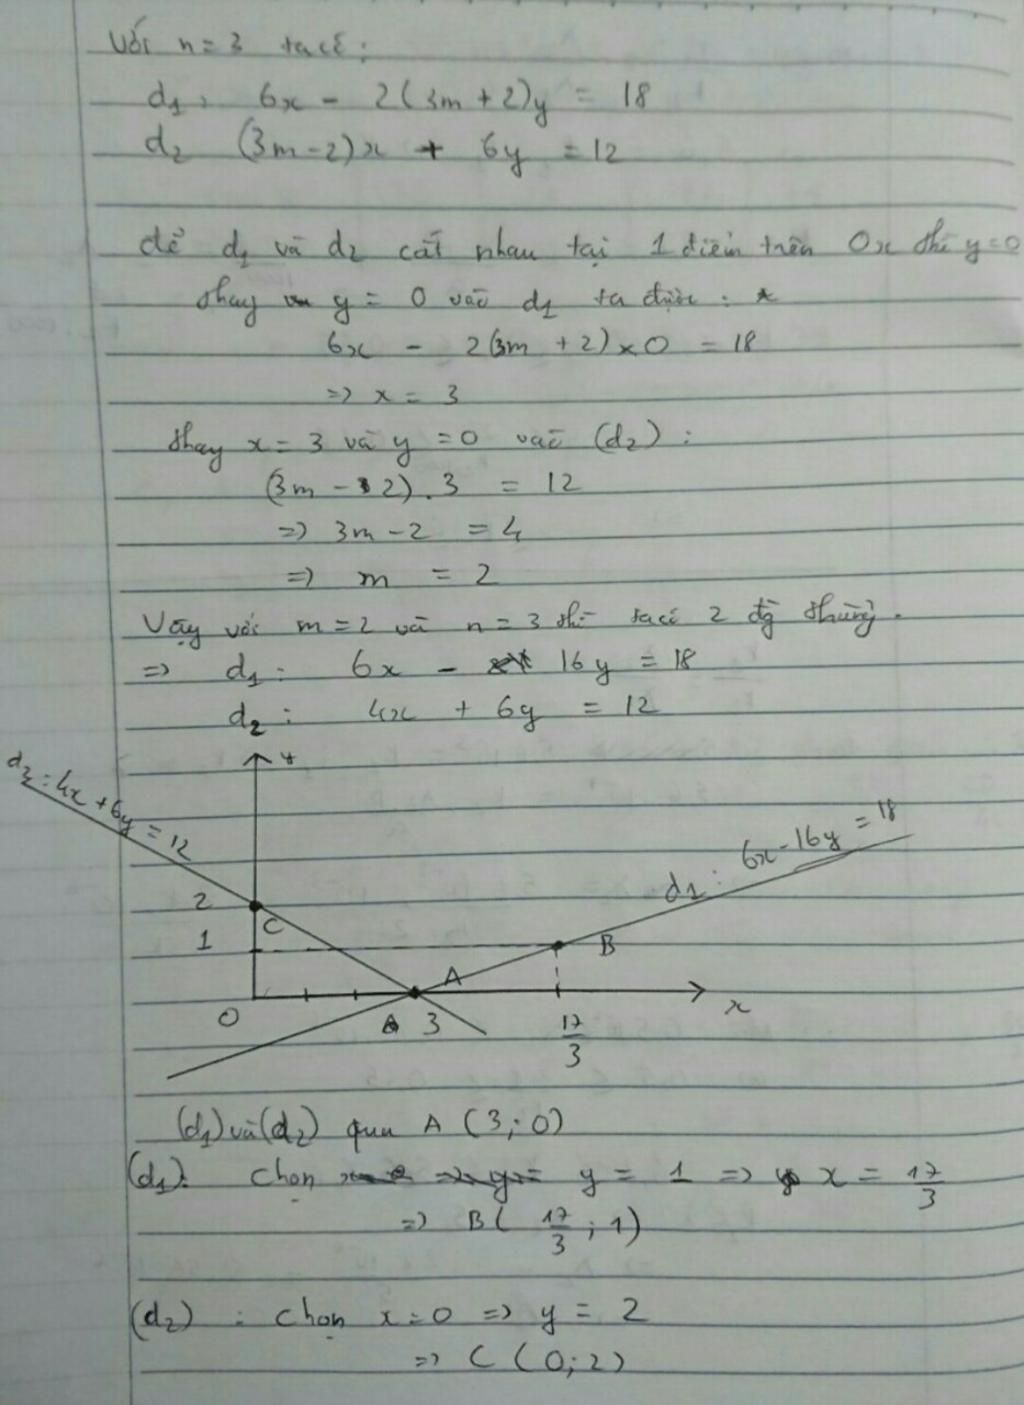 Với n = 3 ta có :
d1 : 6x - 2(3m + 2)y = 18
d2 (3m-2)x + 6y = 12
để d1 và d2 cắt nhau tại 1 điểm trên Ox thì y=0
thay y = 0 vào d1 ta được :
6x - 2(3m + 2)×0 = 18
=> x = 3
thay x = 3 và y = 0 vào (d2) :
(3m - 2).3 = 12
=> 3m - 2 = 4
=> m = 2
Vậy với m = 2 và n = 3 thì ta có 2 đg thẳng.
=> d1 : 6x - 16y = 18
d2 : 4x + 6y = 12
y
d2 : 4x + 6y = 12
d1 : 6x - 16y = 18
2
C
1
B
A
O
3
x
17/3
(d1) và (d2) qua A (3 ; 0)
(d1): Chọn y = 1 => x = 17/3
=> B( 17/3 ; 1)
(d2) : chọn x = 0 => y = 2
=> C (0; 2)